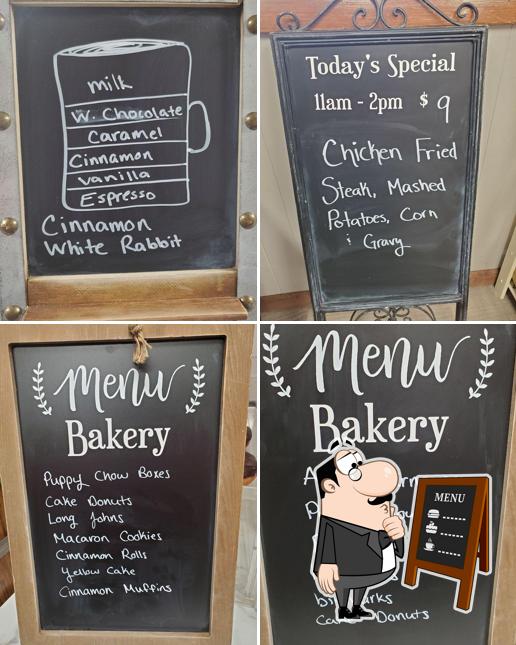 milk
W. Chocolate
Caramel
Cinnamon
Vanilla
Espresso
Cinnamon
White Rabbit
Today's Special
11am - 2pm $9
Chicken Fried
Steak, Mashed
Potatoes, Corn
& Gravy
Menu
Bakery
Puppy Chow Boxes
Cake Donuts
Long Johns
Macaron Cookies
Cinnamon Rolls
Yellow Cake
Cinnamon Muffins
Menu
Bakery
MENU
Donuts